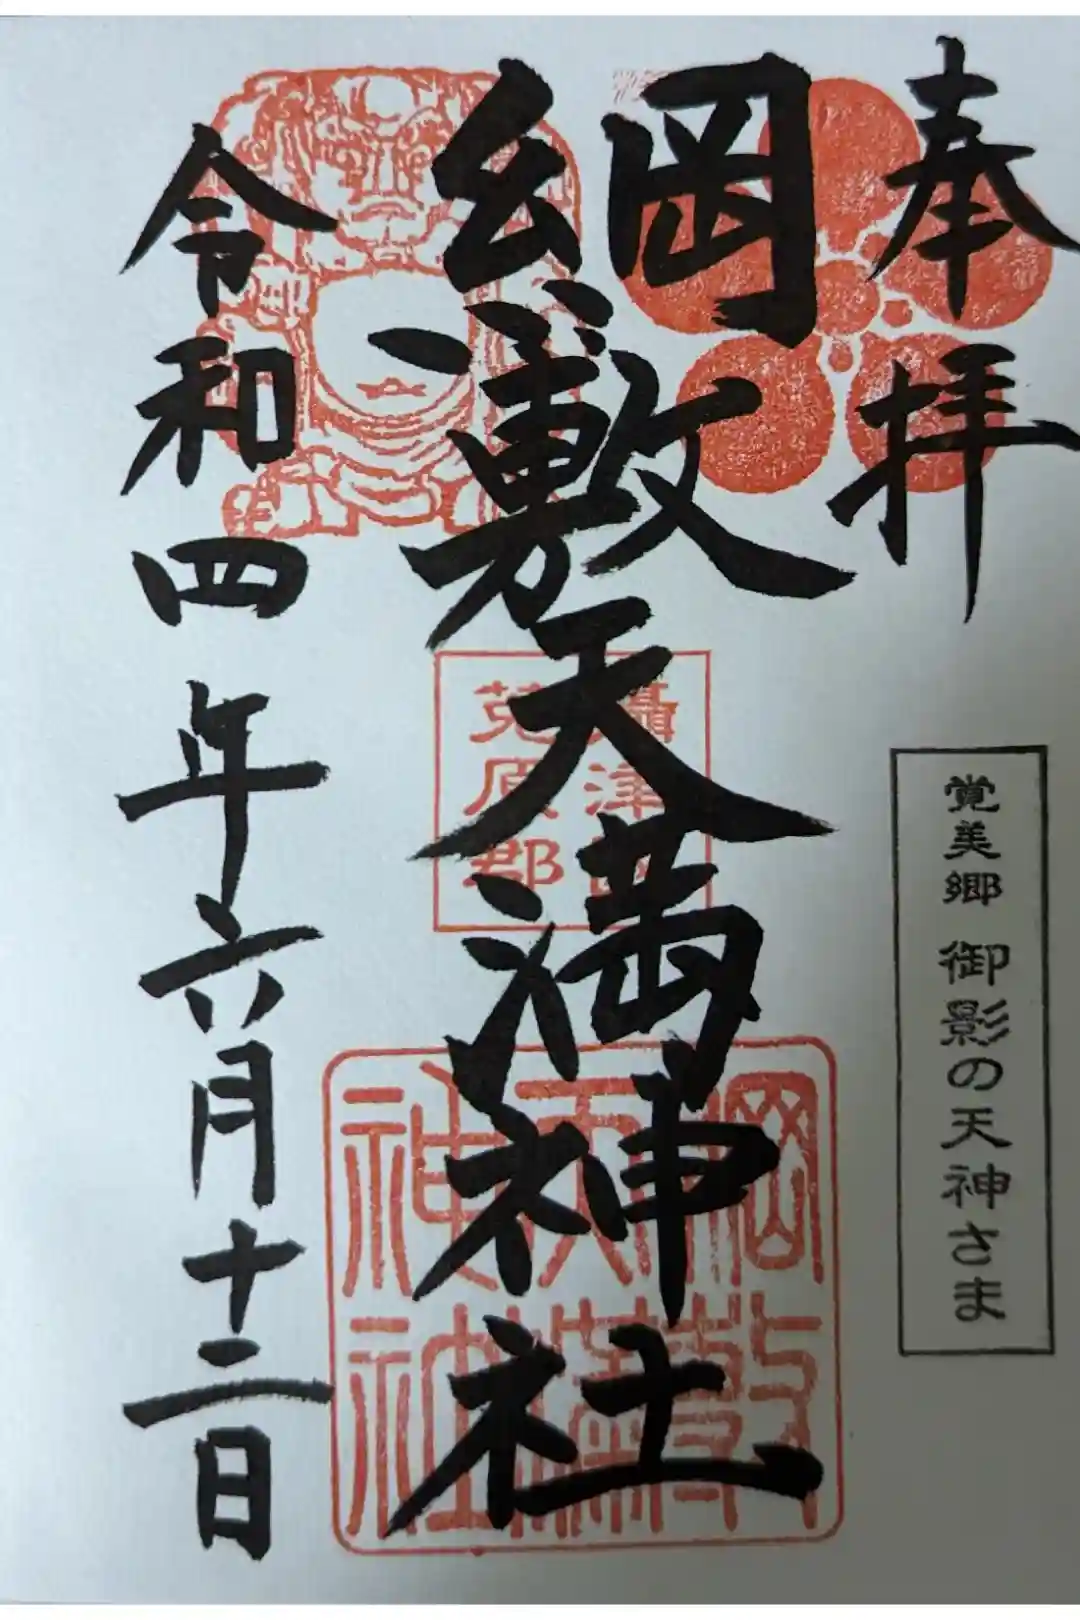 奉拝
覚美郷 御影の天神さま
綱敷天満神社
攝津国
菟原郡
綱敷
天満
神社
令和四年六月十二日